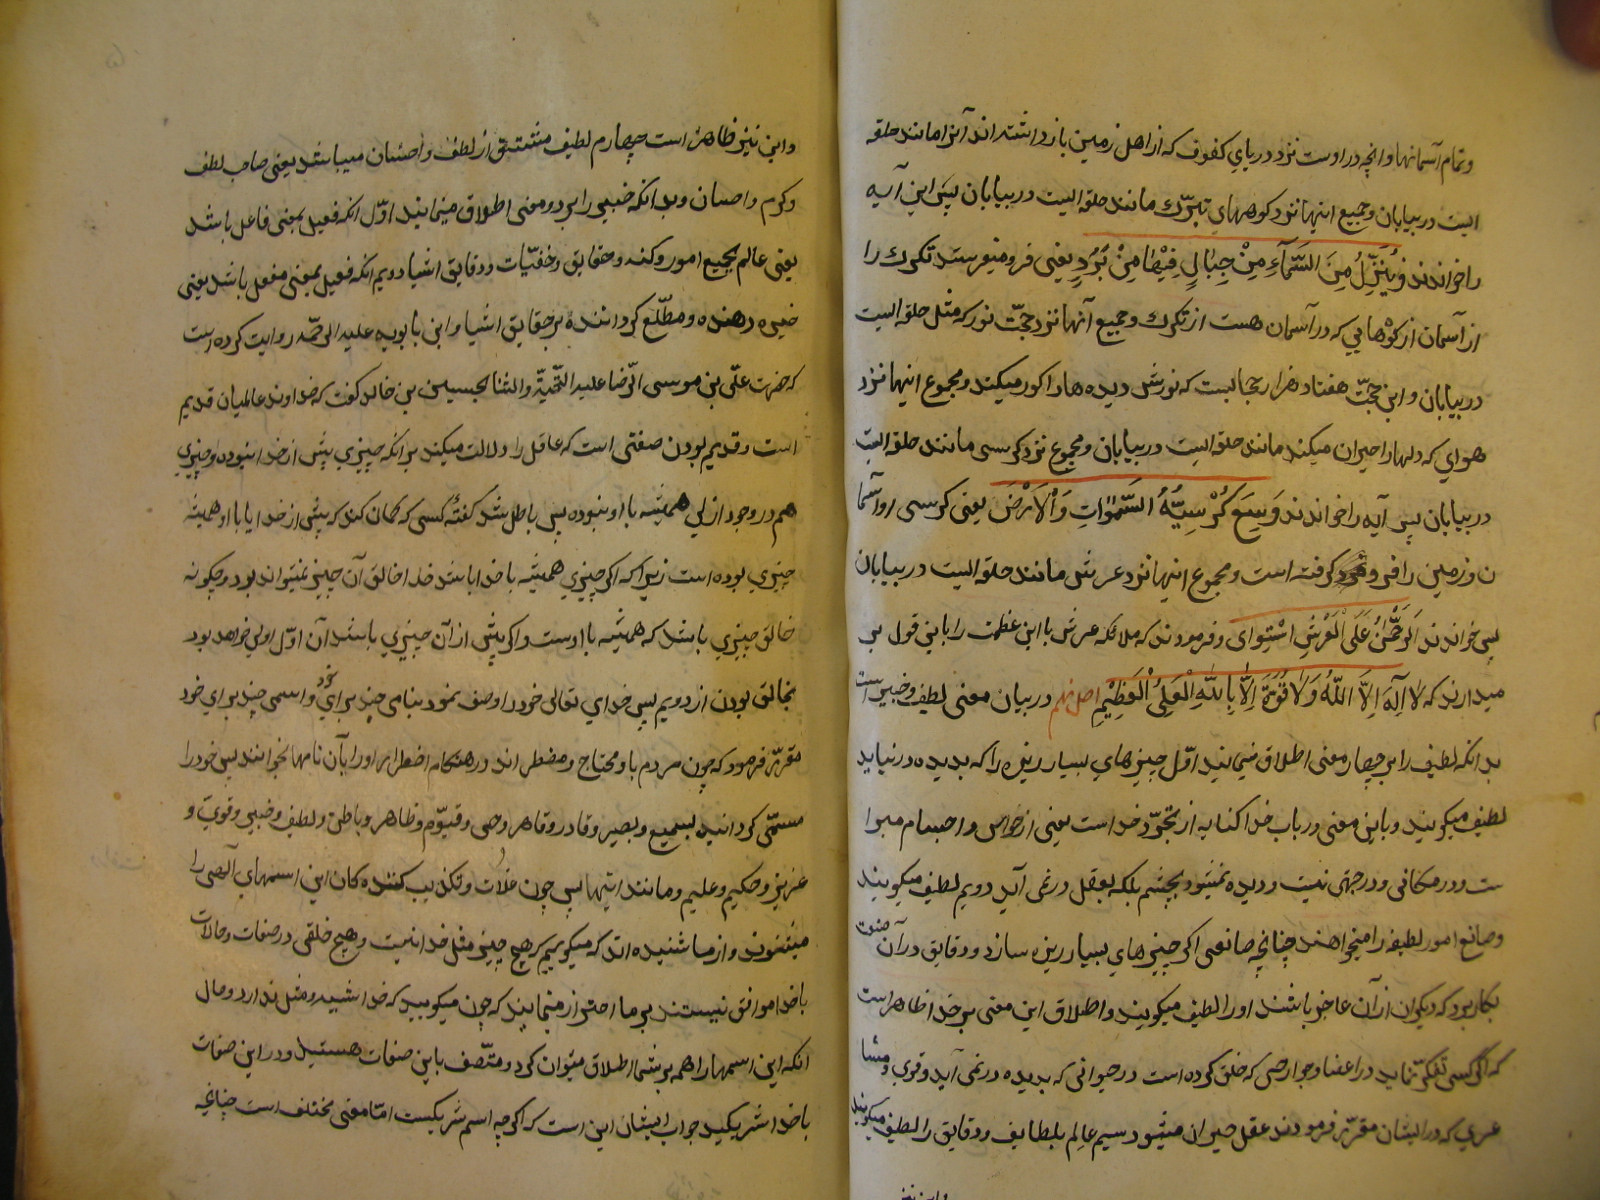 وتمام آسمانها وانچه در اوست نزد درياي كفوف كه از اهل زمين بازداشته اند آنرا مانند حلقه
ايست در بيابان وجميع اينها نزد كوههاي تبرّك مانند حلقه ايست در بيابان پس اين آيه
را خواندند وَيُنَزِّلُ مِنَ السَّمَآءِ مِنْ جِبَالٍ فِيْهَا مِنْ بَرَدٍ يعنى فرو ميفرستد تكرك را
از آسمان از كوهايي كه در آسمان هست از تكرك وجميع آنها نزد حجّت نور كه مثل حلقه ايست
در بيابان واين حجّت هفتاد هزار حجابست كه نورش ديده ها را كور ميكند ومجموع اينها نزد
هواي كه دلها را حيران ميكند مانند حلقه ايست در بيابان ومجموع نزد كرسى مانند حلقه ايست
در بيابان پس آيه را خواندند وَسِعَ كُرْسِيُّهُ السَّمٰوَاتِ وَالْاَرْضَ يعنى كرسى او آسما
ن وزمين را فرو گرفته است ومجموع اينها نزد عرش مانند حلقه ايست در بيابان
پس خواندند اَلرَّحْمٰنُ عَلَى الْعَرْشِ اسْتَوٰى وفرمودند كه ملائكه عرش با اين عظمت را باين قول بر
ميدارند كه لَا اِلٰهَ اِلَّا اللّٰهُ وَلَا قُوَّةَ اِلَّا بِاللّٰهِ الْعَلِىِّ الْعَظِيْمِ اصل نهم در بيان معنى لطيف وخبير است
بدانكه لطيف را بر چهار معنى اطلاق مينمايند اوّل چيزهاي بسيار ريزه را كه بديده در نيايد
لطيف ميكويند وباين معنى در باب خدا كنايه از تجرّد خداست يعنى از حواس واجسام مبرا
ست ودر مكانى ودر جهتى نيست وديده نميشود بچشم بلكه بعقل در نمى آيد دويم لطيف ميكويند
وصانع امور لطيفه را ميخواهند چنانچه صانعى اكر چيزهاي بسيار ريزه سازد ودقايق در آن صنعت
بكار برد كه ديكران از آن عاجز باشند او را لطيف ميكويند واطلاق اين معنى بر خدا ظاهر است
كه اكر كسى تفكّر نمايد در اعضا وجوارحى كه خلق كرده است در حيوانى كه بديده در نمى آيد وقوى ومشا
عري كه در ايشان مقرّر فرمودند عقل حيران ميشود سيم عالِم بلطايف ودقايق را لطيف ميكويند
واين نيز
واين نيز ظاهر است چهارم لطيف مشتق از لطف واحسان ميباشد يعنى صاحب لطف
وكرم واحسان وبدانكه خبير را بر دو معنى اطلاق مينمايند اوّل انكه فعيل بمعنى فاعل باشد
يعنى عالم بجميع امور وكنه وحقايق وخفيّات ودقايق اشيا دويم انكه فعيل بمعنى مفعل باشد يعنى
خبره دهنده ومطّلع كرداننده بر حقايق اشيا وابن بابويه عليه الرحمّه روايت كرده است
كه حضرت علّى بن موسى الرّضا عليه التّحيّة والثنا بحسين بن خالد كفت كه خداوند عالميان قديم
است وقديم بودن صفتى است كه عاقل را دلالت ميكند بر انكه چيزي پيش از خدا نبوده وچيزي
هم در وجود ازلي هميشه با او نبوده پس باطل شد كفتهٔ كسى كه كمان كند كه پيش از خدا يا با او هميشه
چيزي بوده است زيرا كه اكر چيزي هميشه با خدا باشد خدا خالق آن چيز نميتواند بود وچكونه
خالق چيزي باشد كه هميشه با اوست واكر پيش از آن چيزي باشد آن اوّل اولى خواهد بود
بخالق بودن از دويم پس خداي تعالى خود را وصف نمود بنامى چند براي خود واسمى چند براي خود
مقرّر فرمود كه چون مردم باو محتاج ومضطر اند در هنكام اضطرار او را بآن نامها بخوانند پس خود را
مسمّى كردانيد بسميع وبصير وقادر وقاهر وحى وقيوّم وظاهر وباطن ولطيف وخبير وقويّ و
عزيز وحكيم وعليم ومانند اينها پس چون غلاُت وتكذيب كننده كان اين اسمهاي آلهى را
ميشنوند واز ما شنيده اند كه ميكوييم كه هيچ چيز مثل خدا نيست وهيچ خلقى در صفات وحالات
با خدا موافق نيستند بر ما اعتراض مينمايند كه چون ميكوييد كه خدا شبيه ومثل ندارد وحال
انكه اين اسمها را همه بر شما اطلاق ميتوان كرد ومتّصف باين صفات هستيد ودر اين صفات
با خدا شريكيد جواب ايشان اين است كه اكرچه اسم شريكست امّا معنى مختلف است چنانچه